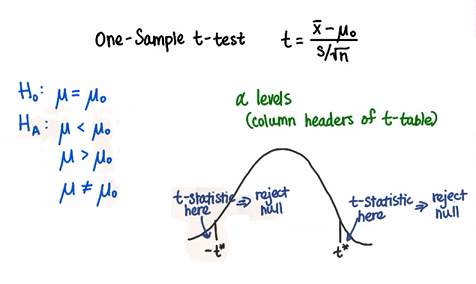 One-Sample t-test t = x̄ - μ₀ / s/√n
H₀: μ = μ₀
H_A: μ < μ₀
μ > μ₀
μ ≠ μ₀
α levels
(column headers of t-table)
t-statistic here ⇒ reject null
t-statistic here ⇒ reject null
-t*
t*